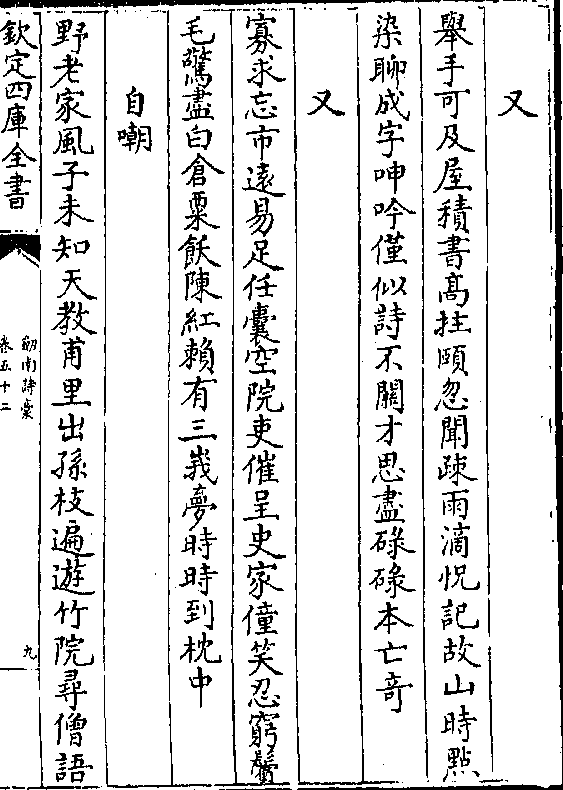 又
舉手可及屋積書髙拄頤忽聞疎雨滴怳記故山時㸃
染聊成字呻吟僅似詩不闗才思盡碌碌本亡竒
又
寡求忘市逺易足任囊空院吏催呈史家僮笑忍窮鬢
毛驚盡白倉粟飫陳紅賴有三峩夢時時到枕中
自嘲
野老家風子未知天教甫里出孫枝遍遊竹院尋僧語
欽定四庫全書
劒南詩稾
卷五十二
九